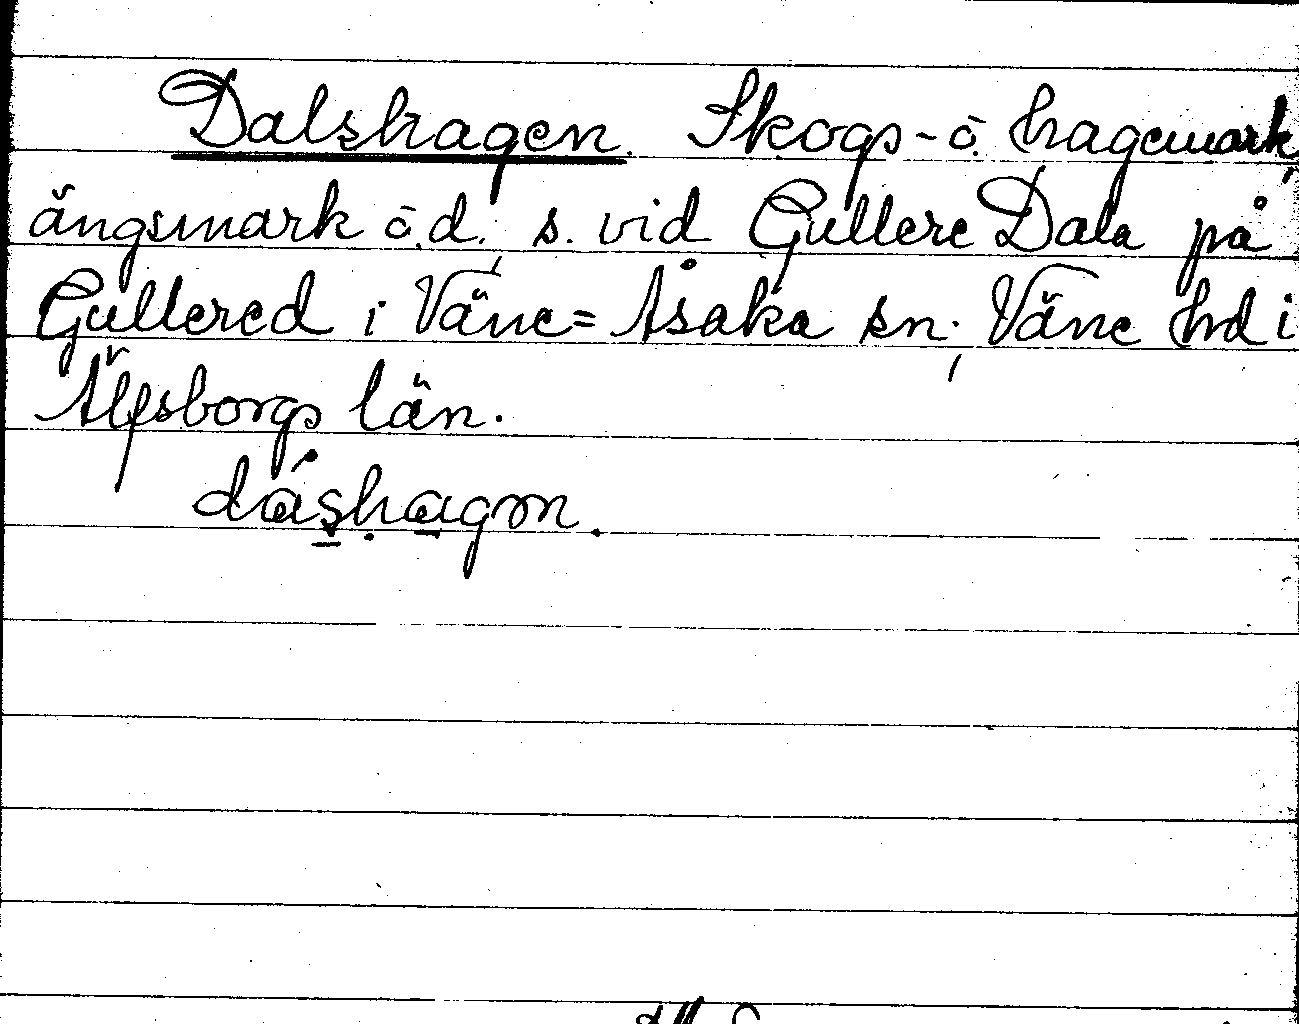 Dalshagen. Skogs- o. hagemark,
ängsmark o.d., s. vid Gullere Dala på
Gullered i Väne=Åsaka sn, Väne hd i
Älfsborgs län.
dáshagǝn.